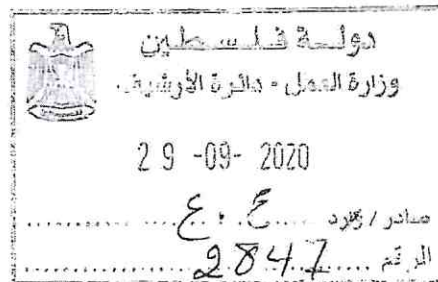 دولة فلسطين
وزارة العمل - دائرة الأرشيف
29 -09- 2020
صادر / وارد ع.ع
الرقم 2847